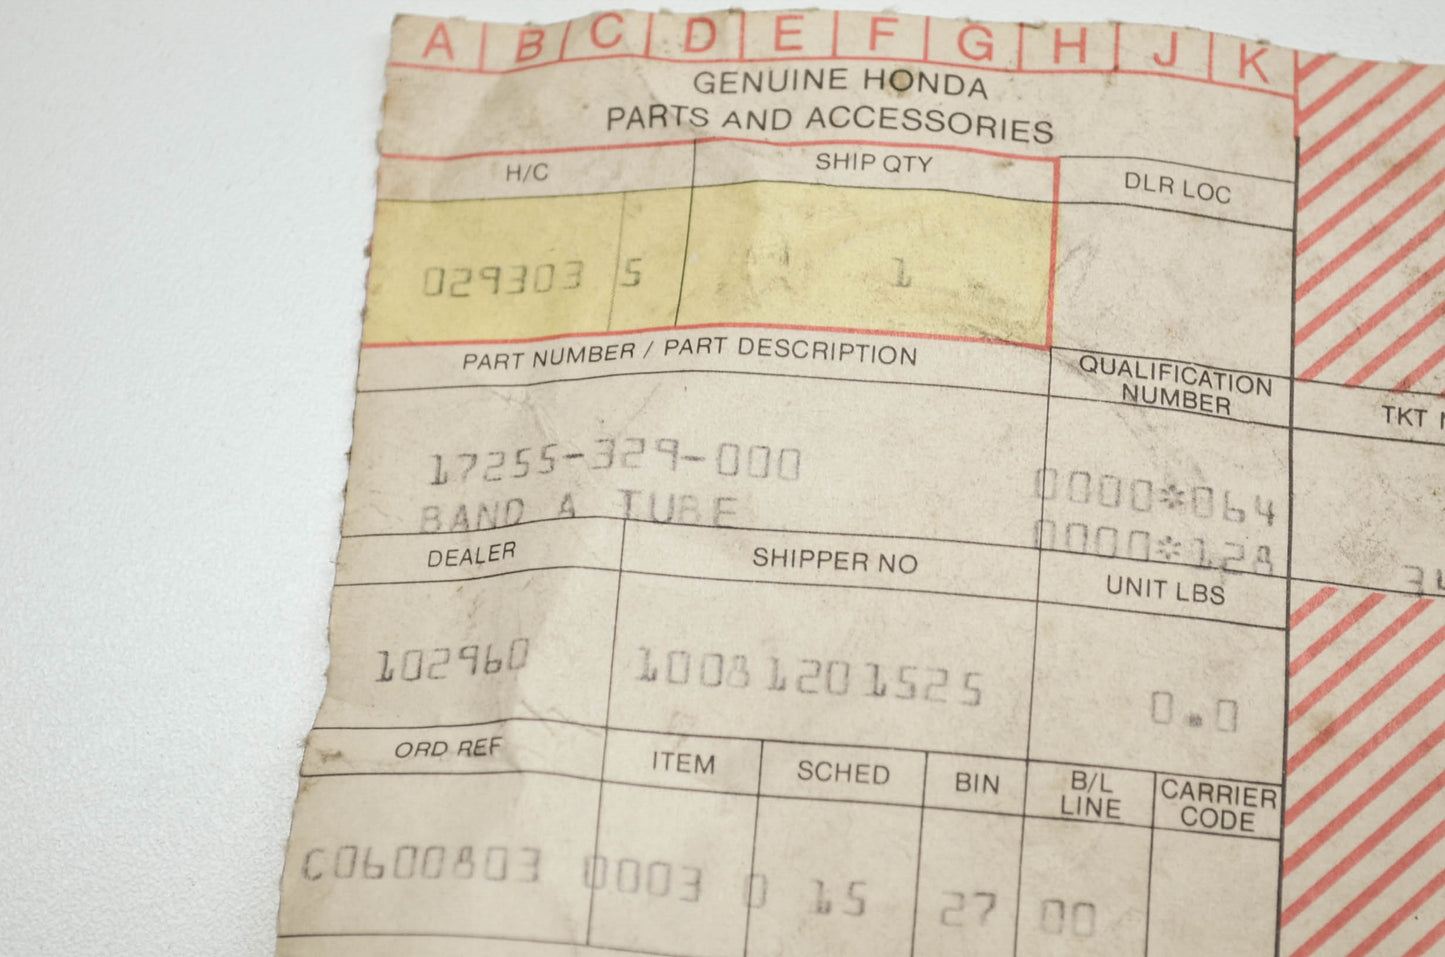 A B C D E F G H J K
GENUINE HONDA
PARTS AND ACCESSORIES
H/C SHIP QTY DLR LOC
029303 5 1
PART NUMBER / PART DESCRIPTION QUALIFICATION NUMBER TKT
17255-329-000 0000*064
BAND A TUBE 0000*128
DEALER SHIPPER NO UNIT LBS
102960 10081201525 0.0
ORD REF ITEM SCHED BIN B/L LINE CARRIER CODE
C0600803 0003 0 15 27 00